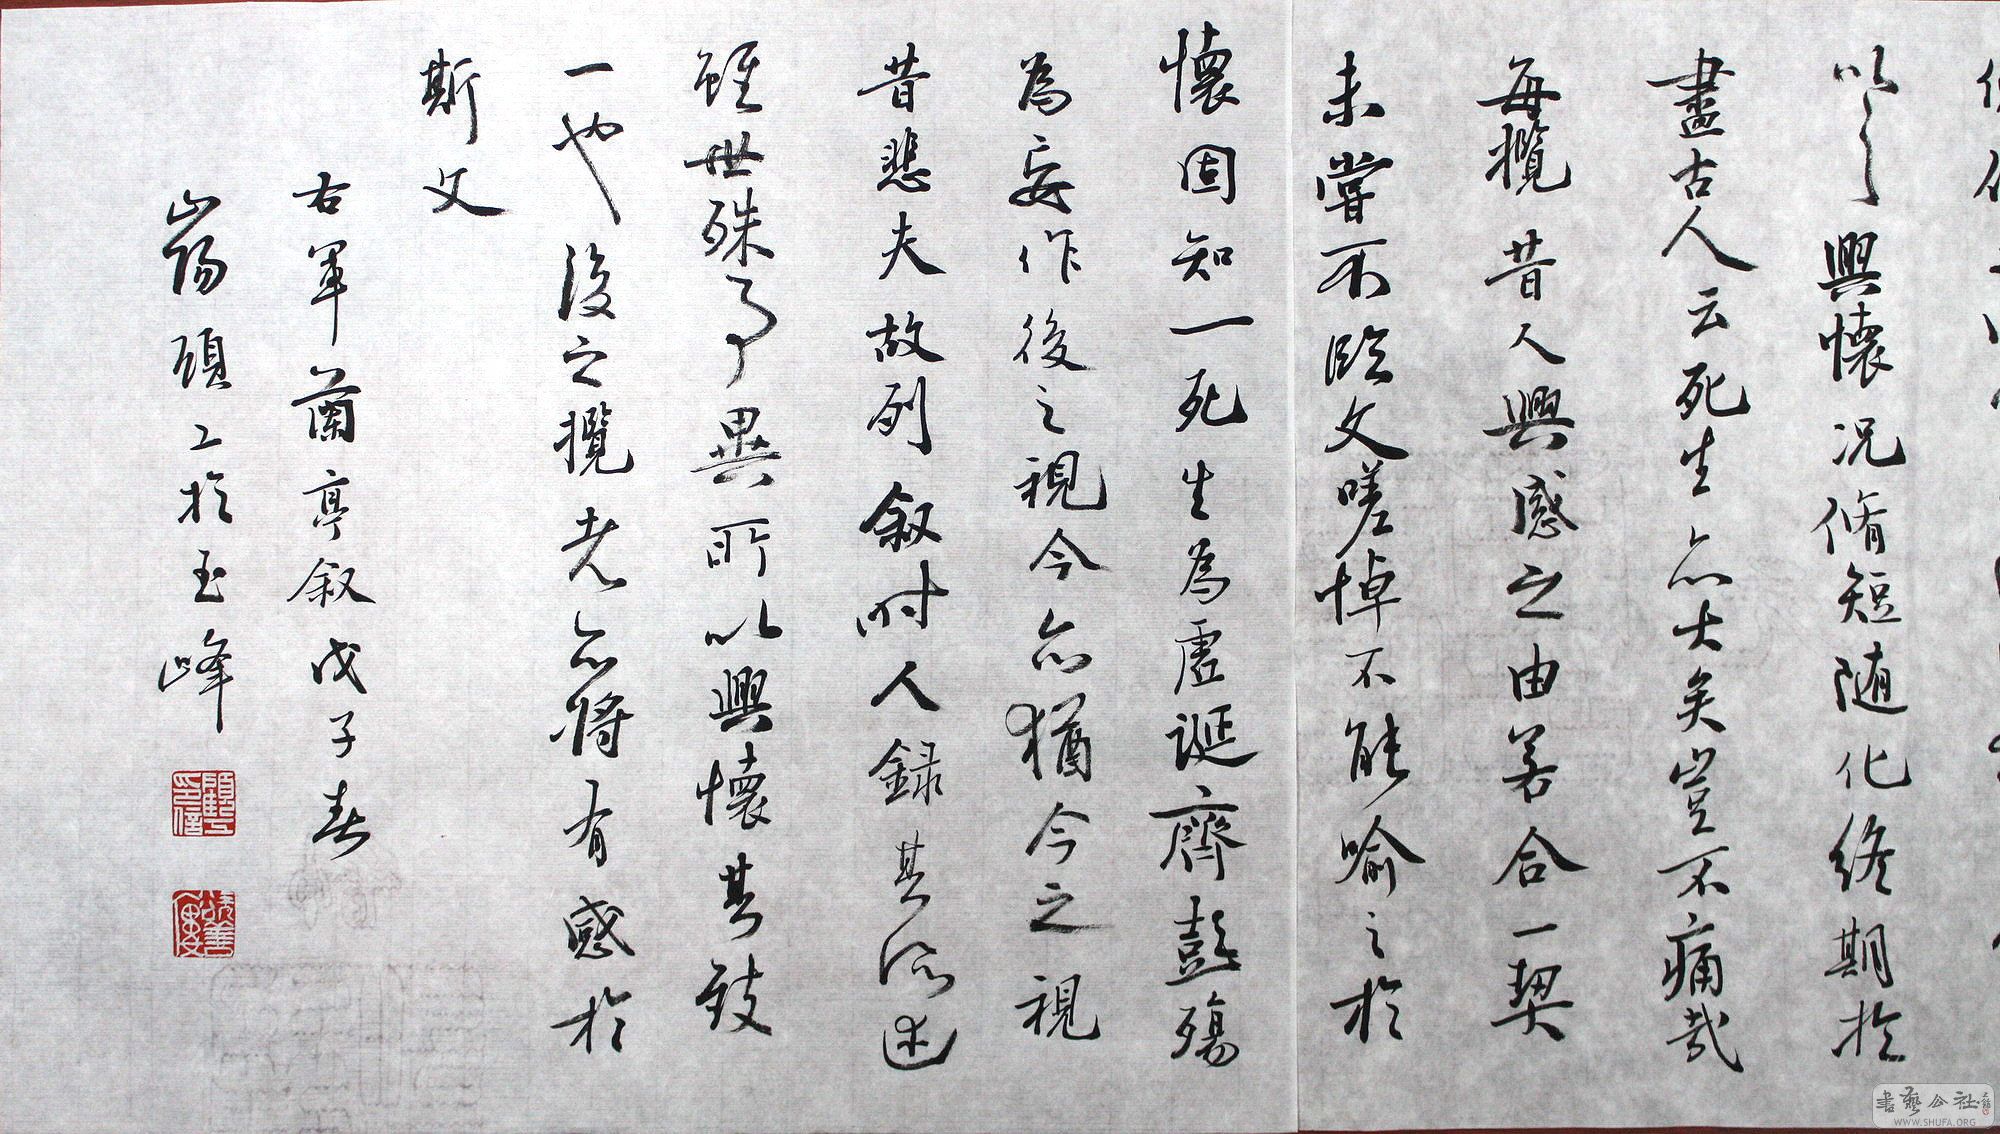 以之興懷況脩短随化終期於
盡古人云死生亦大矣豈不痛哉
每攬昔人興感之由若合一契
未嘗不臨文嗟悼不能喻之於
懷固知一死生為虛誕齊彭殤
為妄作後之視今亦猶今之視
昔悲夫故列叙時人録其所述
雖世殊事異所以興懷其致
一也後之攬者亦將有感於
斯文
右軍蘭亭叙戊子春
山陽顧工於玉峰
顧工印信
書藝公社
WWW.SHUFA.ORG